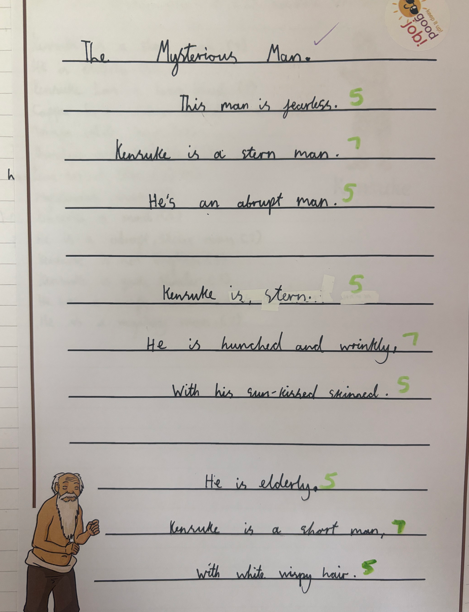 good
job!
The Mysterious Man.
This man is fearless. 5
Kensuke is a stern man. 7
h
He's an abrupt man. 5
Kensuke is, stern... 5
He is hunched and wrinkly, 7
With his sun-kissed skinned. 5
He is elderly, 5
Kensuke is a short man, 7
With white wispy hair. 5